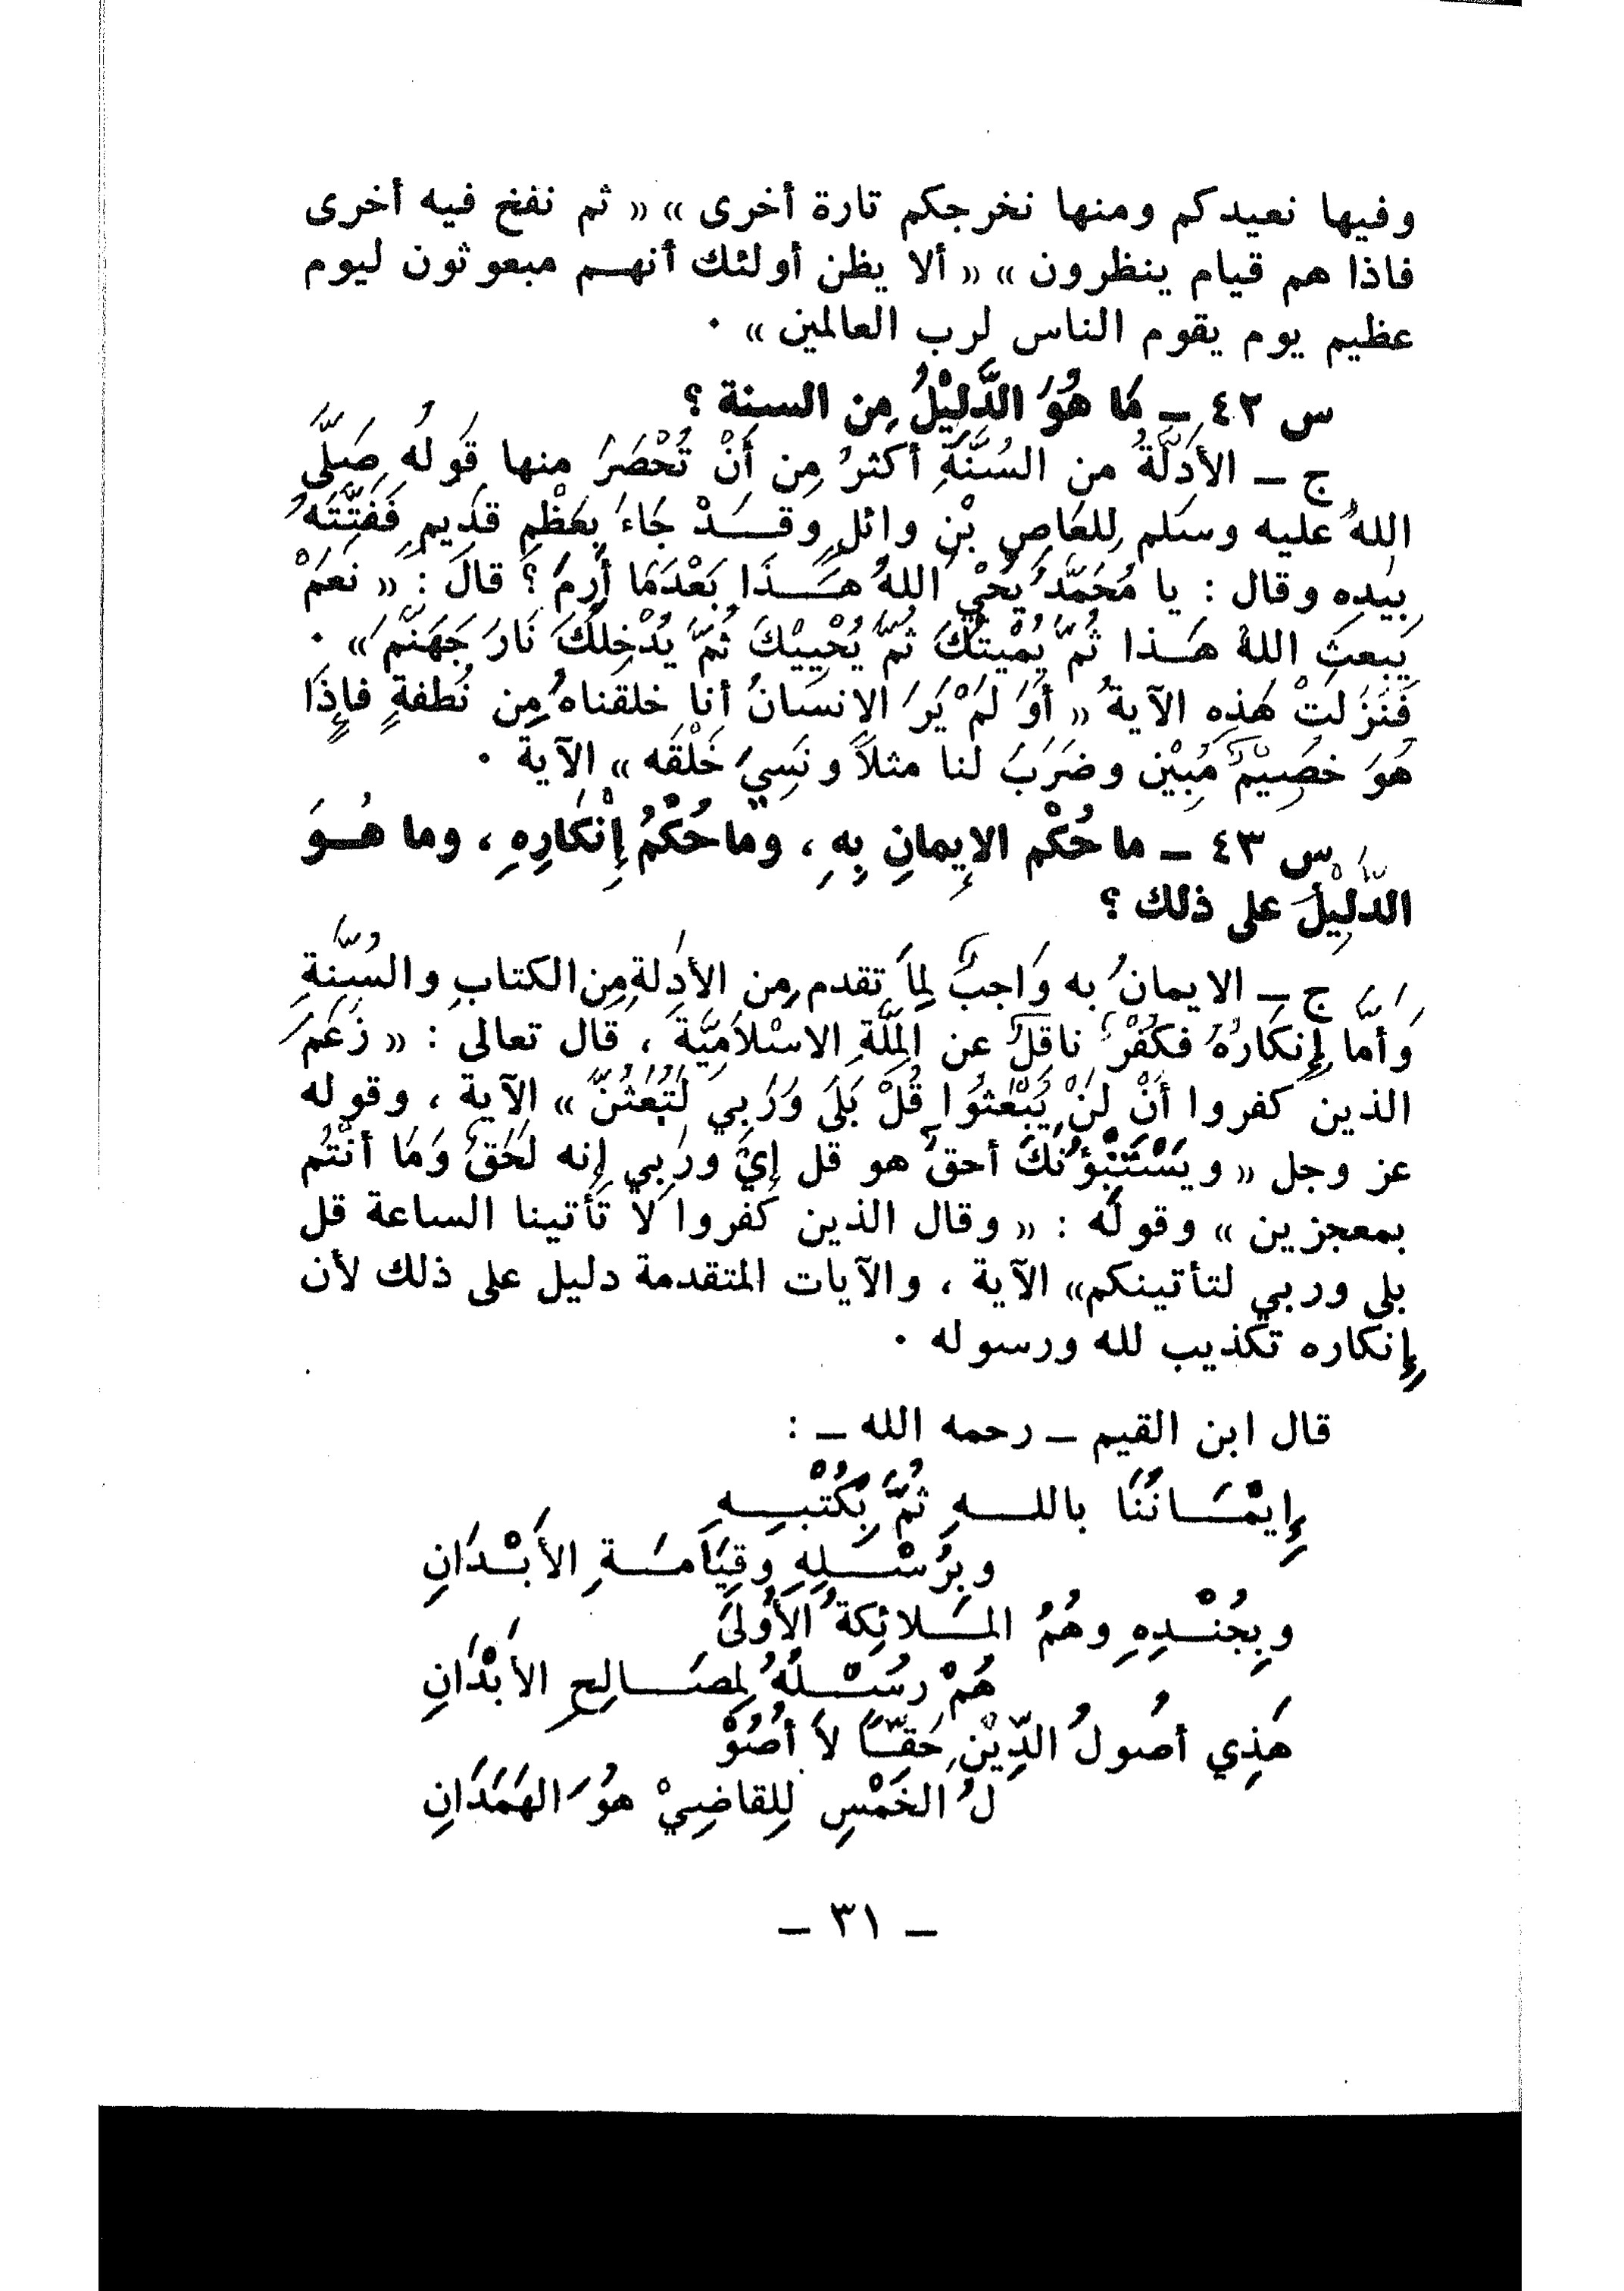 وفيها نعيدكم ومنها نخرجكم تارة أخرى » « ثم نفخ فيه أخرى
فاذا هم قيام ينظرون » « ألا يظن أولئك أنهم مبعوثون ليوم
عظيم يوم يقوم الناس لرب العالمين » ٠
س ٤٢ ـ مَا هُوَ الدَّلِيْلُ مِن السنة ؟
ج ـ الأدَلَّةُ من السُنَّةِ أكثرُ مِن أَنْ تُحْصَرَ منها قَولُه صَلَّى
اللهُ عليه وسَلم لِلعَاصِ بْنِ وائلٍ وقَدْ جَاءَ بِعَظْمٍ قدِيمٍ فَفَتَّتَهُ
بِيَدِه وقال : يا مُحَمَّدُ يُحْيِ اللهُ هَذَا بَعْدَمَا أَرِمَ ؟ قالَ : « نَعَمْ
يَبعثُ اللهُ هَذا ثُمَّ يُمْيتُكَ ثُمَّ يُحْيِيْكَ ثُمَّ يُدْخِلُكَ نَارَ جَهَنَّمَ » ٠
فَنَزَلتْ هَذِه الآيةُ « أَوَ لَمْ يَرَ الإنسَانُ أنا خلقناهُ مِن نُطفةٍ فإِذَا
هُوَ خصَيْمٌ مُبيْن وضَرَبَ لنا مثلاً ونَسِيَ خَلْقَه » الآيةَ ٠
س ٤٣ ـ ما حُكْم الإيمانِ بِهِ ، وما حُكْمُ إِنْكَارِهِ ، وما هُوَ
الدَّلِيْلَ على ذلك ؟
ج ـ الايمانُ به وَاجبٌ لِمَا تقدم مِن الأدِلةِ مِن الكتابِ والسُنَّةِ
وَأمَّا إِنكَارُهُ فكُفْرٌ ناقلٌ عن المِلَّةِ الاسْلاَمِيَّة ، قال تعالى : « زَعَمَ
الذين كفروا أَنْ لَنْ يُبْعَثُوا قُلْ بَلَى وَرَبي لَتُبْعَثُنَّ » الآية ، وقوله
عز وجل « ويَسْتَنْبِؤُنَكَ أحقٌ هو قل إِيْ ورَبِي إنه لَحَقٌ وَمَا أنْتُم
بمعجزين » وقولُه : « وقال الذين كفروا لا تَأتينا الساعة قل
بلى وربي لتأتينكم» الآية ، والآيات المتقدمة دليل على ذلك لأن
إِنكاره تكذيب لله ورسوله ٠
قال ابن القيم ـ رحمه الله ـ :
إِيْمَانُنَا باللهِ ثُمَّ بِكُتْبِهِ
وبِرُسْلِهِ وَقِيَامَةِ الأَبْدَانِ
وبِجُنْدِهِ وهُمُ المَلائِكةُ الأُولَى
هُمْ رسُلْهُ لِمصَالِحِ الأَبْدَانِ
هَذِي أصُولُ الدِّيْنِ حَقّاً لاَ أصُوْ
لُ الخَمْسِ لِلقاضِيْ هوُ الهَمَدَانِ
ـ ٣١ ـ